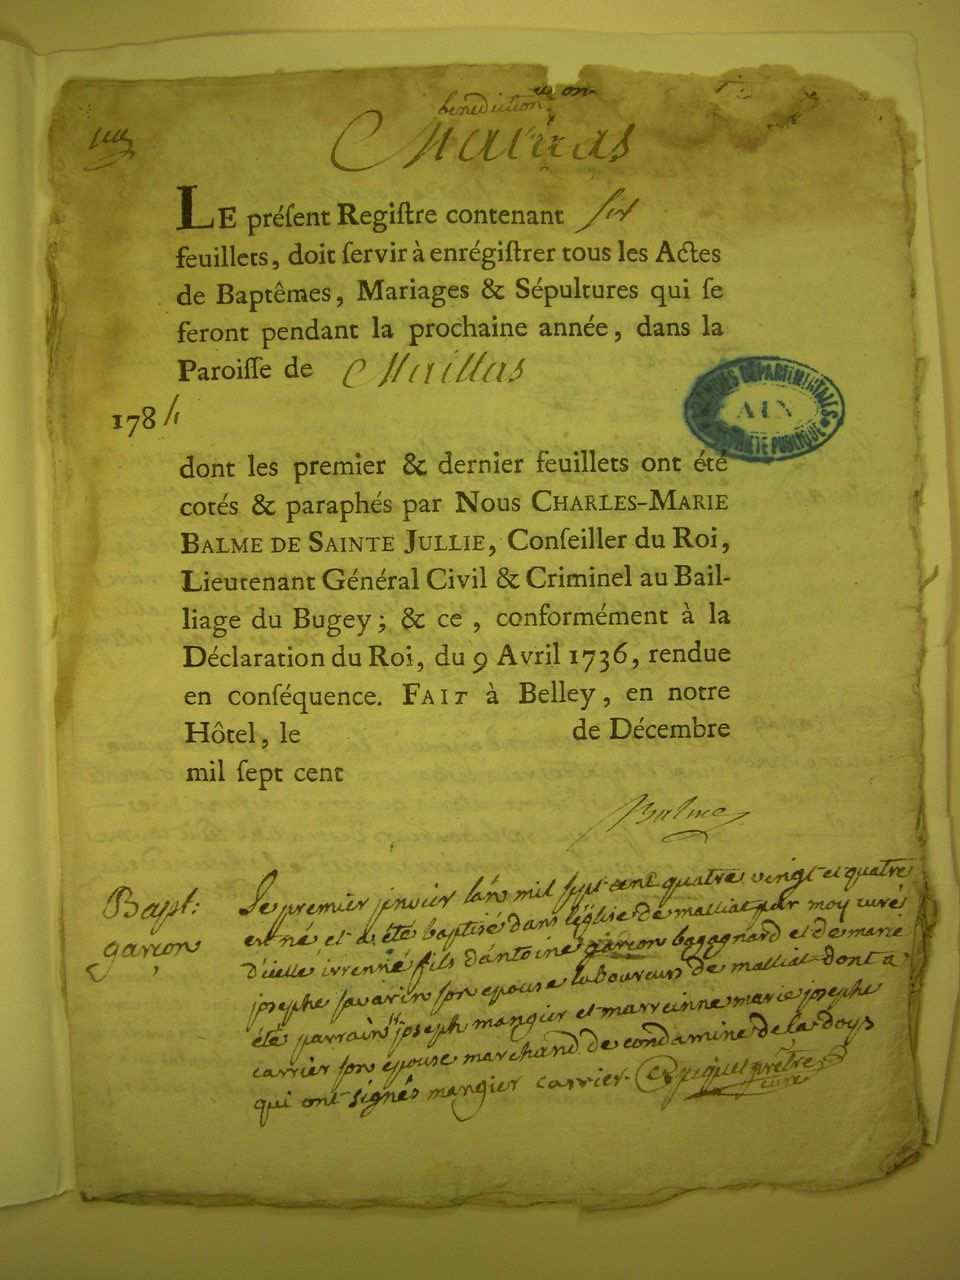 benediction
Maillas
LE préſent Regiſtre contenant ſix
feuillets, doit ſervir à enrégiſtrer tous les Actes
de Baptêmes, Mariages & Sépultures qui ſe
feront pendant la prochaine année, dans la
Paroiſſe de Maillas
1784
ARCHIVES DÉPARTEMENTALES
AIN
PROPRIÉTÉ PUBLIQUE
dont les premier & dernier feuillets ont été
cotés & paraphés par Nous CHARLES-MARIE
BALME DE SAINTE JULLIE, Conſeiller du Roi,
Lieutenant Général Civil & Criminel au Bail-
liage du Bugey; & ce, conformément à la
Déclaration du Roi, du 9 Avril 1736, rendue
en conſéquence. FAIT à Belley, en notre
Hôtel, le de Décembre
mil ſept cent
Balme
Bapt:
garçon
Le premier janvier lan mil sept cent quatre vingt et quatre
est né et a été baptisé dans l'église de malliat par moy curé
d'icelle fils d'antoine garçon bagagnard et de marie
josephe savarin son epouse laboureur de malliat dont a
été parrain joseph mangier et marreinne marie josephe
carrier son epouse marchand de condamine de la doys
qui ont signés mangier carrier. piquet prêtre
curé